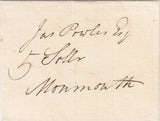 Jas Powles Esq
Sollr
Monmouth